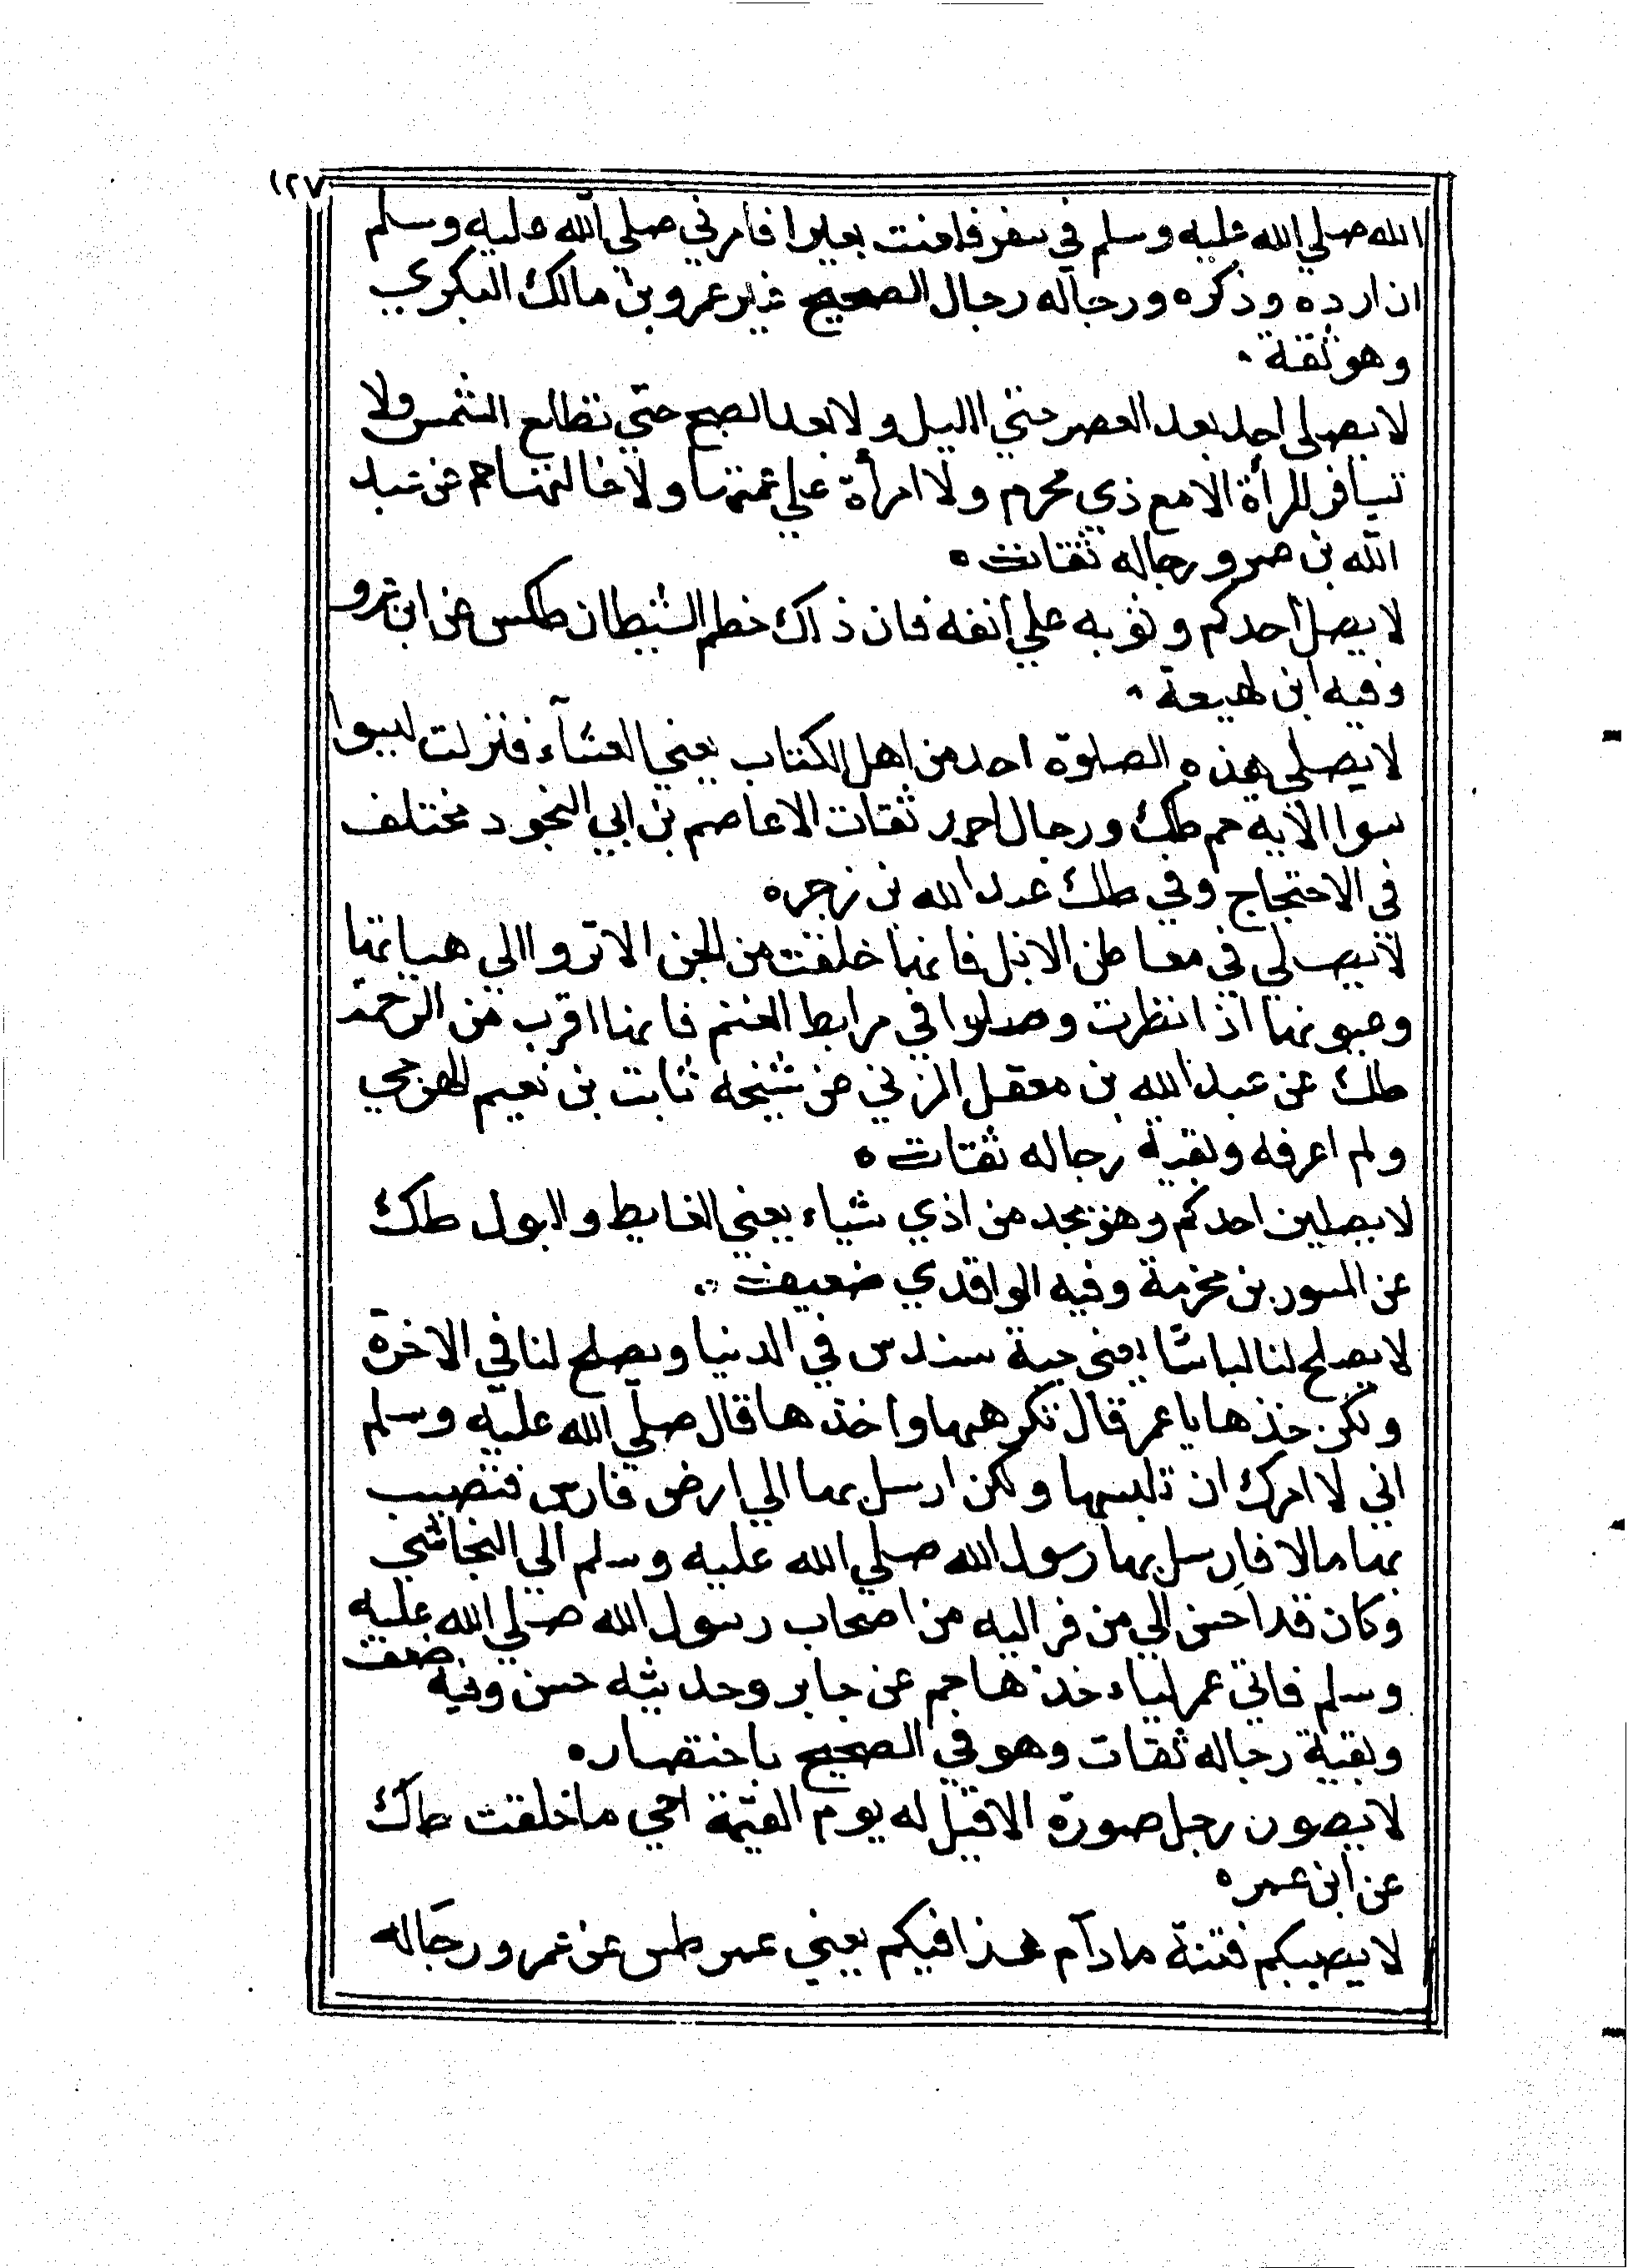 ١٢٧
الله صلي الله عليه وسلم في سفر فلعنت بعيرا فامرني صلي الله عليه وسلم
ان ارده وذكره ورجاله رجال الصحيح غير عمرو بن مالك البكري
وهو ثقة
لا يصلي احد بعد العصر حتي الليل ولا بعد الصبح حتي تطلع الشمس ولا
تسافر المرأة الا مع ذي محرم ولا امرأة علي عمتها ولا خالتها حم عن عبد
الله بن عمرو رجاله ثقات ه
لا يصل أحدكم وثوبه علي أنفه فان ذاك خطم الشيطان طكس عن ابن عمرو
وفيه ابن لهيعة
لا يصلي هذه الصلوة احد من اهل الكتاب يعني العشآء فنزلت ليسوا
سوا الاية حم طك ورجال احمد ثقات الا عاصم بن ابي النجود مختلف
في الاحتجاج وفي طك عبد الله بن زجره
لا يصلي في معاطن الابل فانها خلقت من الجن الا تروا الي هياتها
وعيونها اذا نظرت وصلوا في مرابط الغنم فانها اقرب من الرحمة
طك عن عبد الله بن معقل المزني عن شيخه ثابت بن نعيم الهوجي
ولم اعرفه وبقية رجاله ثقات ه
لا يصلين احدكم وهو يجد من اذي شياء يعني الغايط والبول طك
عن المسور بن مخرمة وفيه الواقدي ضعيف
لا يصلح لنا لباسا يعني جبة سندس في الدنيا ويصلح لنا في الاخرة
ولكن خذها يا عمر قال تكرهها واخذها قال صلي الله عليه وسلم
اني لا امرك ان تلبسها ولكن ارسل بها الي ارض فارس فتصيب
بها مالا فارسل بها رسول الله صلي الله عليه وسلم الي النجاشي
وكان قد احسن الي من فر اليه من اصحاب رسول الله صلي الله عليه
وسلم فاتي عمر لياء خذها حم عن جابر وحديثه حسن وفيه ضعف
وبقية رجاله ثقات وهو في الصحيح باختصاره
لا يصون رجل صورة الا قيل له يوم القيمة احي ما خلقت طك
عن ابن عمره
لا يصيبكم فتنة مادآم هذا فيكم يعني عمر طس عن عمر ورجاله